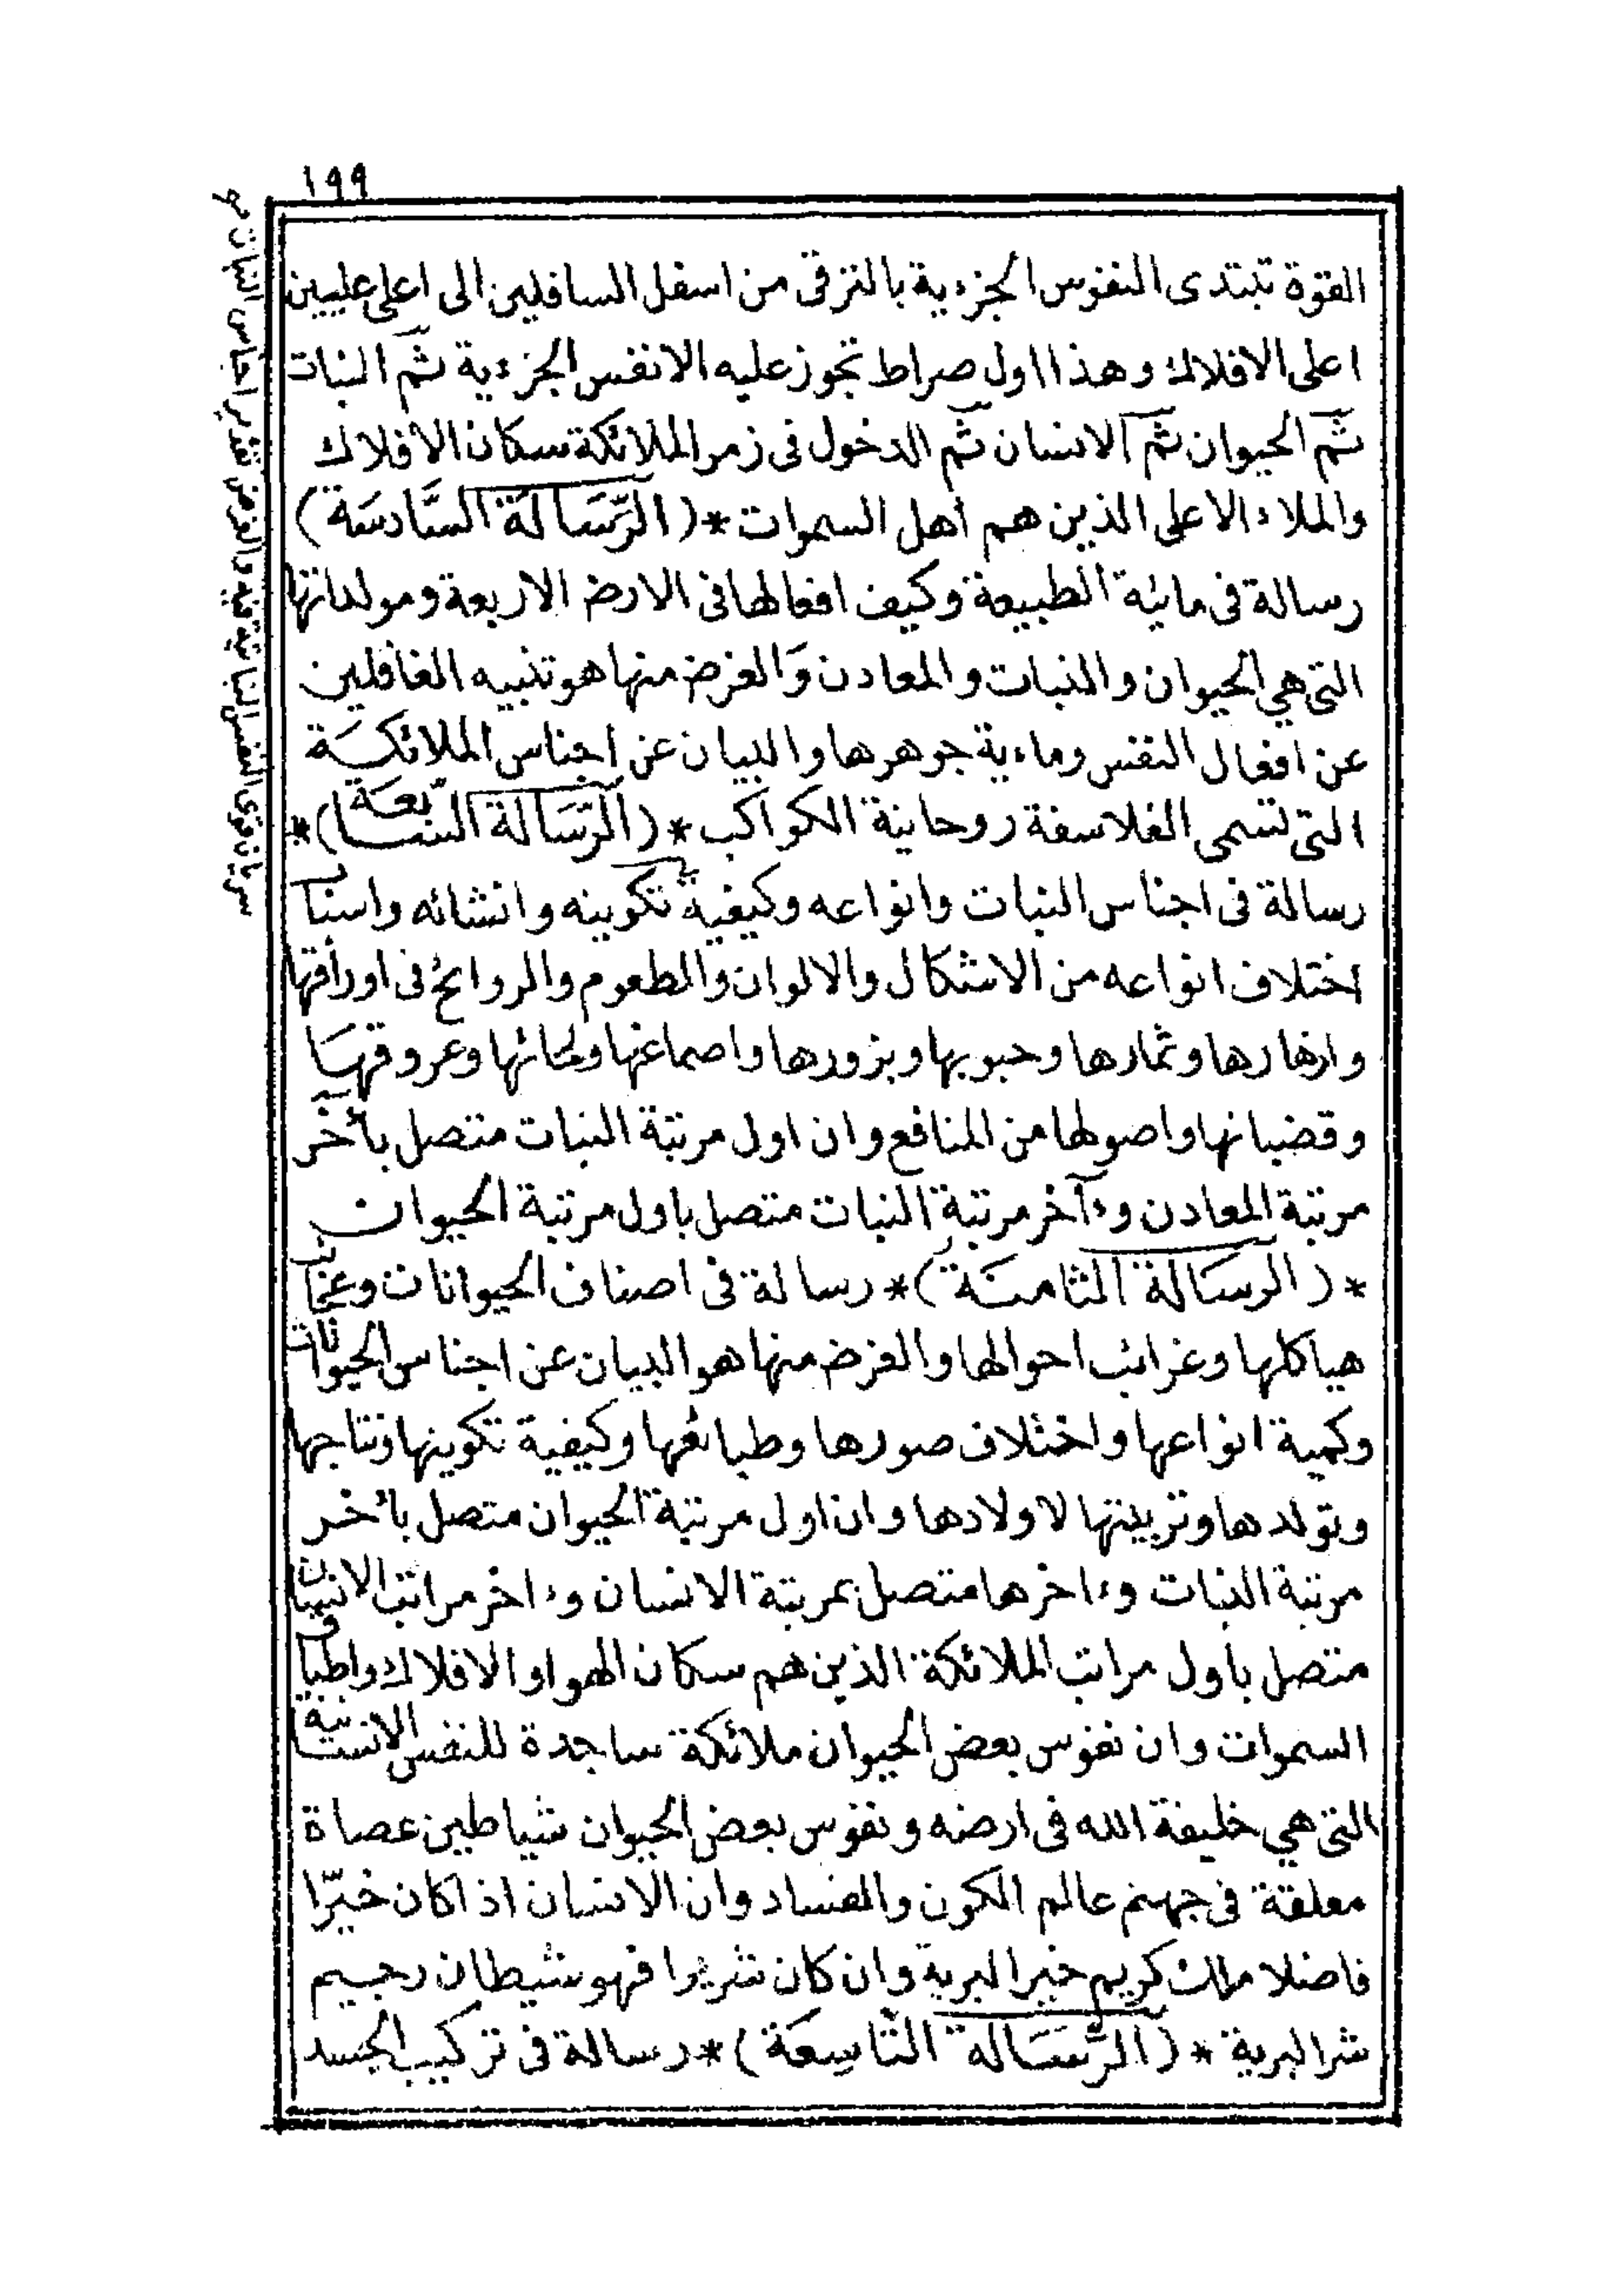 ١٩٩
القوة تبتدى النفوس الجزءية بالترقى من اسفل السافلين الى اعلى عليين
اعلى الافلاك وهذا اول صراط تجوز عليه الانفس الجزءية ثم النبات
ثم الحيوان ثم الانسان ثم الدخول فى زمر الملائكة سكان الافلاك
والملاء الاعلى الذين هم اهل السموات *(الرّسَالة السَّادسَة)
رسالة فى مائية الطبيعة وكيف افعالها فى الارض الاربعة ومولداتها
التى هي الحيوان والنبات والمعادن وَالغرض منها هو تنبيه الغافلين
عن افعال النفس وماءية جوهرها والبيان عن اجناس الملائكَة
التى تسمى الفلاسفة روحانية الكواكب *(الرّسَالة السَّابعَة)*
رسالة فى اجناس النبات وانواعه وكيفية تكوينه وانشائه واسباب
اختلاف انواعه من الاشكال والالوان والطعوم والروائح فى اوراقها
وازهارها وثمارها وحبوبها وبزورها واصماغها ولحائها وعروقهَا
وقضبانها واصولها من المنافع وان اول مرتبة النبات متصل بأخر
مرتبة المعادن وءآخر مرتبة النبات متصل باول مرتبة الحيوان
*(الرسَالة الثامنَة)* رسالة فى اصناف الحيوانات وعجائب
هياكلها وغرائب احوالها والغرض منها هو البيان عن اجناس الحيوانات
وكمية انواعها واختلاف صورها وطبائعها وكيفية تكوينها ونتاجها
وتولدها وتربيتها لاولادها وان اول مرتبة الحيوان متصل بأخر
مرتبة النبات وءاخرها متصل بمرتبة الانسان وءاخر مراتب الانسان
متصل باول مراتب الملائكة الذين هم سكان الهوا والافلاك واطباق
السموات وان نفوس بعض الحيوان ملائكة ساجدة للنفس الانسانية
التى هي خليفة الله فى ارضه ونفوس بعض الحيوان شياطين عصاة
معلقة فى جهنم عالم الكون والفساد وان الانسان اذا كان خيّرا
فاضلا ملك كريم خير البرية وان كان شريرا فهو شيطان رجيم
شر البرية *(الرَّسَالة التّاسِعَة)* رسالة فى تركيب الجسد
سريان قوى النفس النباتية فيه والغرض تعديد اجناس النبات